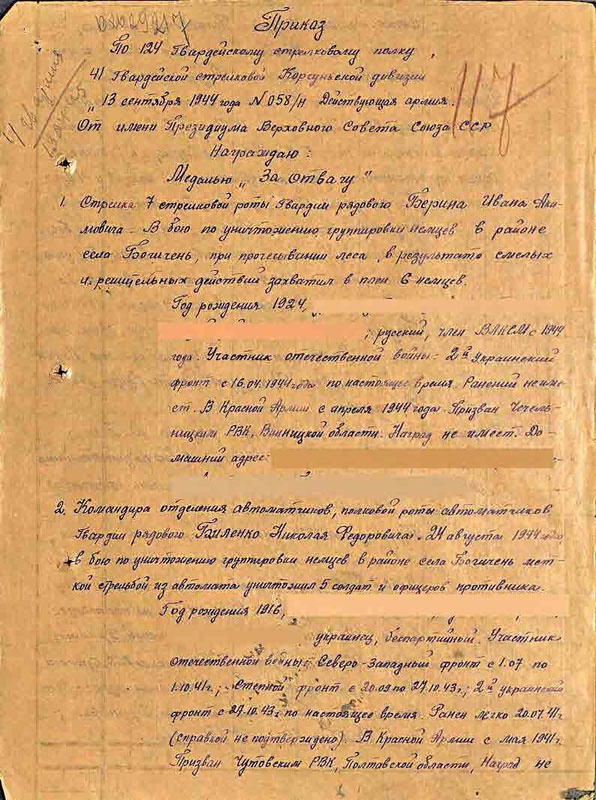 Приказ
По 124 Гвардейскому стрелковому полку,
41 Гвардейской стрелковой Корсуньской дивизии
"13 сентября 1944 года N 058/н Действующая армия.
117
От имени Президиума Верховного Совета Союза ССР
Награждаю:
Медалью "За отвагу"
1. Стрелка 7 стрелковой роты Гвардии рядового Берина Ивана Аки-
мовича. В бою по уничтожению группировки немцев в районе
села Богичень, при прочесывании леса, в результате смелых
и решительных действий захватил в плен 6 немцев.
Год рождения 1924,
, русский, член ВЛКСМ с 1944
года. Участник отечественной войны - 2й Украинский
фронт с 16.04.1944 года по настоящее время. Ранений не име-
ет. В Красной Армии с апреля 1944 года. Призван Чечель-
ницким РВК, Винницкой области. Наград не имеет. До-
машний адрес:
2. Командира отделения автоматчиков, полковой роты автоматчиков
Гвардии рядового Биленко Николая Федоровича. 24 августа 1944 года
в бою по уничтожению группировки немцев в районе села Богичень мет-
кой стрельбой из автомата уничтожил 5 солдат и офицеров противника.
Год рождения 1916,
украинец, беспартийный. Участник
отечественной войны: Северо-Западный фронт с 1.07 по
1.10.41г.; Степной фронт с 20.09 по 27.10.43г; 2й украинский
фронт с 27.10.43г. по настоящее время. Ранен легко 20.07.41г
(справкой не подтверждено). В Красной Армии с мая 1941г.
Призван Чутовским РВК, Полтавской области, Наград не